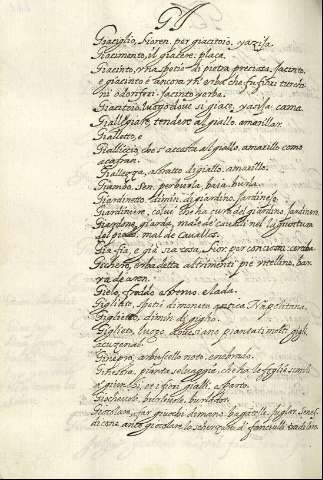 G I
Giaciglio, Fioren. per giacitoio. yazija.
Giacimento, il giacere. plaça.
Giacinto, vna spetie di pietra preciosa, Jacinto,
e giacinto è ancora vn' erba che fu fiori turchi
ni odoriferi. jacinto yerba.
Giacitoio, luogo doue si giace, yazija. cama.
Gialleggiare, tendere al giallo. amarillear.
Gialletto, e
Gialliccio, che s'accosta al giallo, amarillo como
açafran.
Giallezza, astratto di giallo. amarillo.
Giambo, Sen. per burla, baia. burla.
Giardinetto, dimin. di giardino, Jardinejo.
Giardiniere, colui che ha cura del giardino, Jardinero.
Giardone, giarda, male de' caualli nella
al piede, mal de cauallos.
Già fia, e già sia cosa, Fior. per
Gichero, erba detta altrimenti piè vitellino, bar
va de aron.
Gielo, freddo asterno. elada.
Gigliato, spetie di moneta antica Napolitana.
Giglietto, dimin. di giglio.
Giglieto, luogo, doue siano piantati molti gigli,
açuzenal.
Ginepro, arbuscello noto, enebrao.
Ginestra, pianta seluaggia, che ha le foglie simili
a' giunchi, et i fiori gialli. esparto.
Giocheuole, burleuole, burlador.
Giocolare, far giuochi di mano, bagattelle, juglar. Senesi
dicono anco giocolare lo scherzare de' fanciulli.